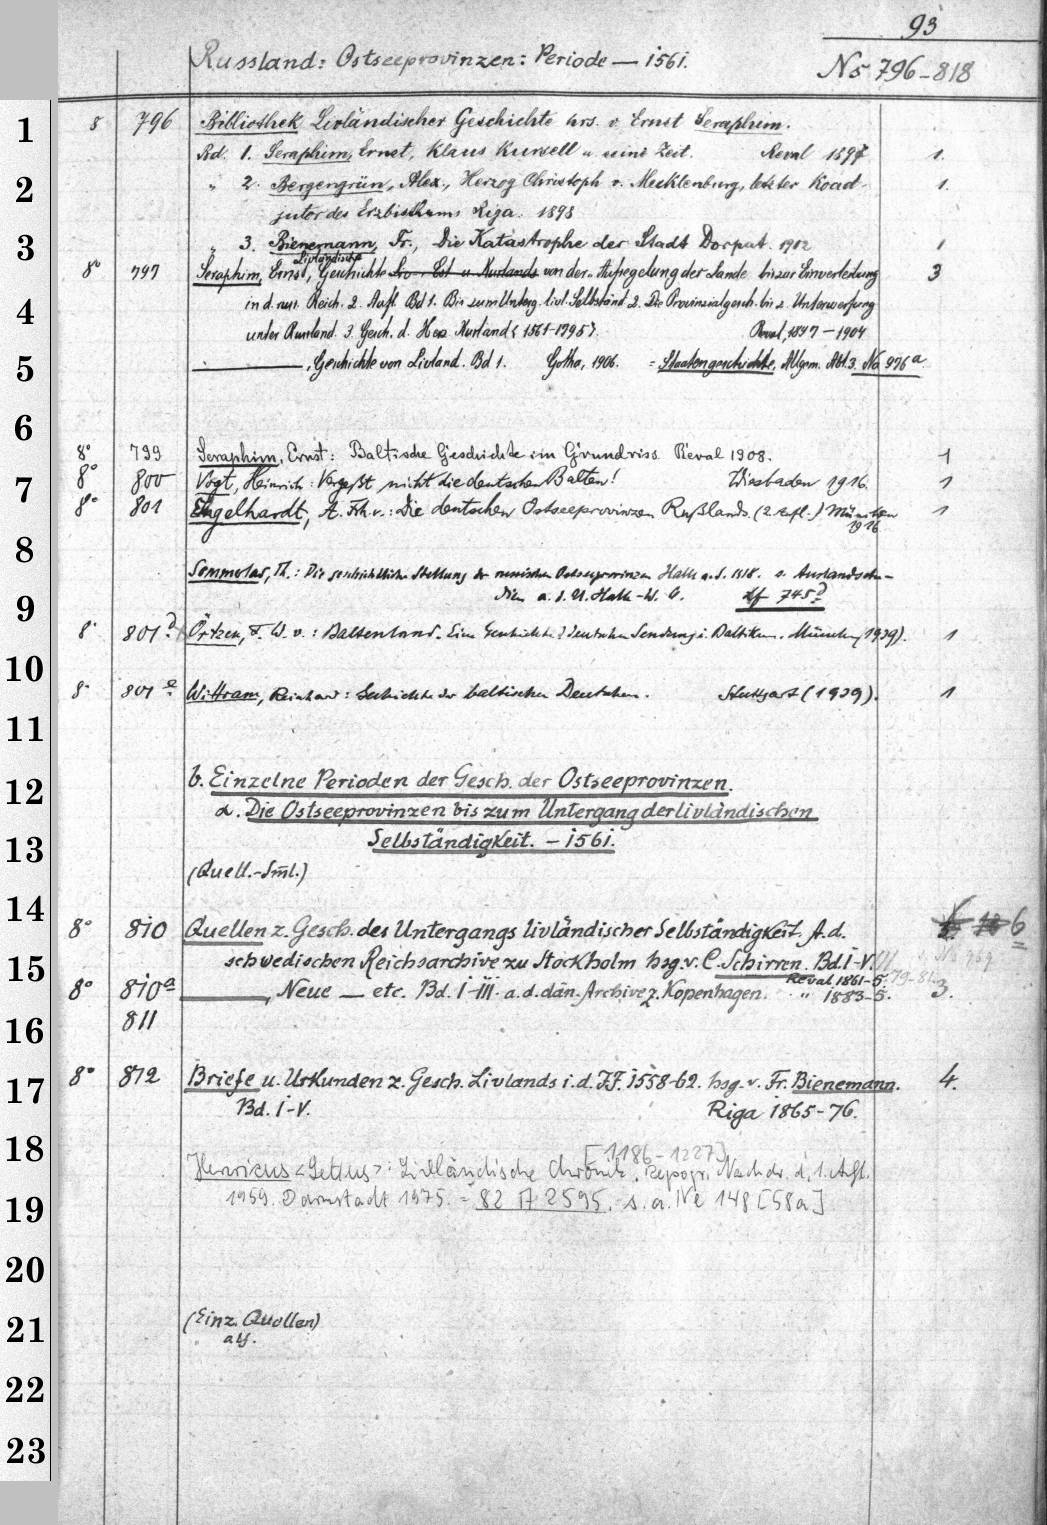 93
Russland: Ostseeprovinzen: Periode — 1561.
No 796-818
1 8 796 Bibliothek Livländischer Geschichte hrs. v. Ernst Seraphim.
Bd. 1. Seraphim, Ernst, Klaus Kursell u. seine Zeit. Reval 1897 1.
2 " 2. Bergengrün, Alex., Herzog Christoph v. Mecklenburg, letzter Koad-
jutor des Erzbisthums Riga. 1898 1.
3 " 3. Bienemann, Fr., Die Katastrophe der Stadt Dorpat. 1902 1
Livländische
8° 797 Seraphim, Ernst, Geschichte Liv- Est- u. Kurlands von der "Aufsegelung der Lande" bis zur Einverleibung 3
4 in d. russ. Reich. 2. Aufl. Bd 1. Bis zum Unterg. livl. Selbständ. 2. Die Provinzialgesch. bis z. Unterwerfung
unter Russland. 3. Gesch. d. Herz. Kurland (1561-1795). Reval, 1897-1904
5 ———, Geschichte von Livland. Bd 1. Gotha, 1906. = Staatengeschichte, Allgem. Abt. 3. No 976a.
6
8° 799 Seraphim, Ernst: Baltische Geschichte im Grundriss. Reval 1908. 1
7 8° 800 Vogt, Heinrich: Vergeßt nicht die deutschen Balten! Wiesbaden 1916. 1
8° 801 Engelhardt, A. Frh. v.: Die deutschen Ostseeprovinzen Rußlands. (2. Aufl.) München 1
1916
8
Die geschichtliche Stellung der russischen Ostseeprovinzen Halle a. S. 1918. s. Auslandsstu-
9 dien a. d. U. Halle-W. 745
8° 801 Örtzen, F. W. v.: Baltenland. Eine Geschichte d. deutschen Sendung i. Baltikum. München (1939). 1
10
8° 801e Wittram, Reinhard: Geschichte der baltischen Deutschen. Stuttgart (1939). 1
11
12 b. Einzelne Perioden der Gesch. der Ostseeprovinzen.
α. Die Ostseeprovinzen bis zum Untergang der livländischen
13 Selbständigkeit. — 1561.
(Quell.-Sml.)
14
8° 810 Quellen z. Gesch. des Untergangs livländischer Selbständigkeit. A. d. 6
15 schwedischen Reichsarchive zu Stockholm hsg. v. C. Schirren. Bd. I-V.
Reval 1861-5. 79-81.
8° 810a ———, Neue — etc. Bd. I-III. a. d. dän. Archive z. Kopenhagen. " 1883-5. 3.
16 811
17 8° 812 Briefe u. Urkunden z. Gesch. Livlands i. d. JJ. 1558-62. hsg. v. Fr. Bienemann. 4.
Bd. I-V. Riga 1865-76.
18 [1186-1227]
Henricus <Lettus>: Livländische Chronik. Repogr. Nachdr. d. 1. Aufl.
19 1959. Darmstadt 1975. = 82 A 2595. s. a. Ne 148 [58a]
20
21 (Einz. Quellen)
22
23